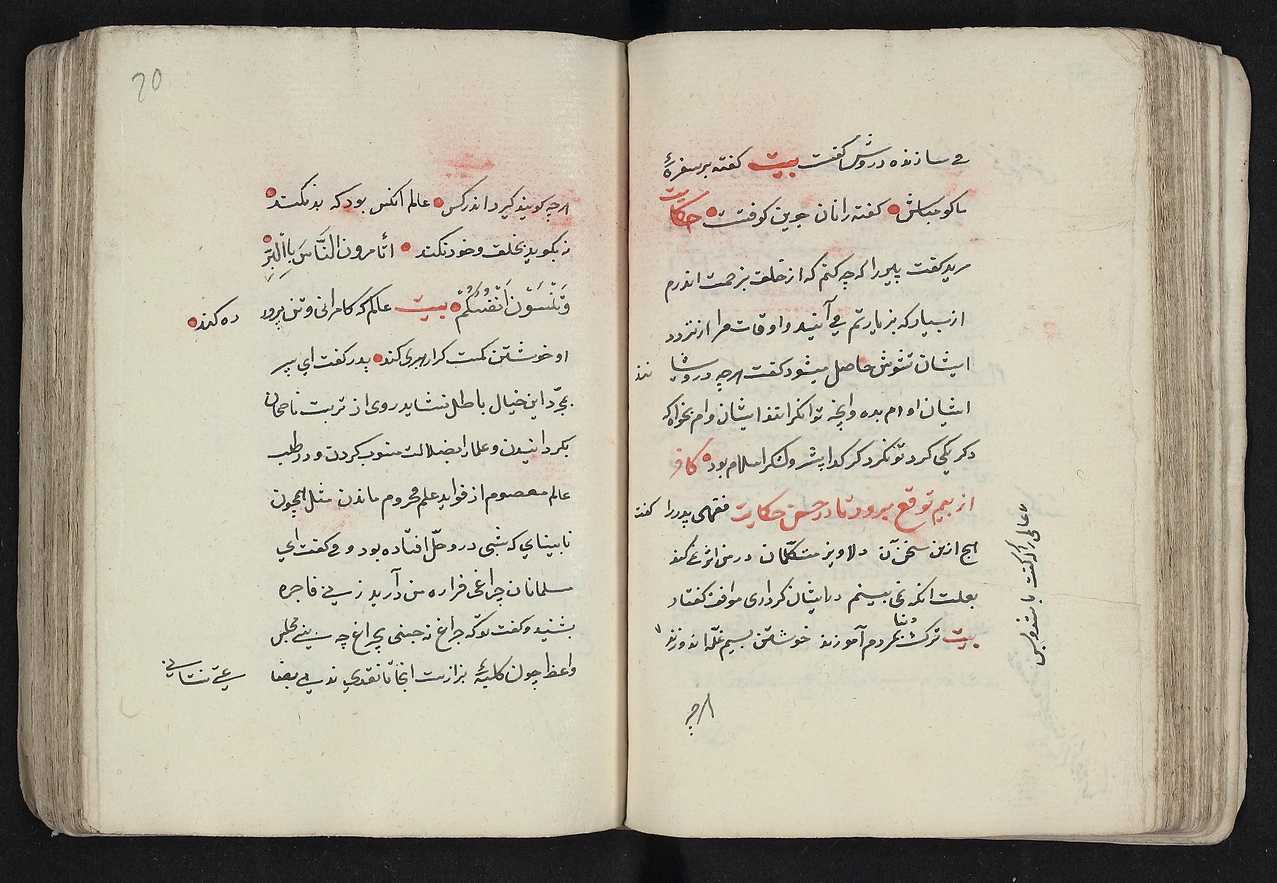 می سازند درویش گفت بیت کفته بر سفرهٔ
ما کو مباش کفته را نان جوین کوفتست حکایت
مرید کفت پیر را که چه کنم که از خلق بزحمت اندرم
از بسیار که بزیارتم می آیند و اوقات مرا از تردد
ایشان تشویش حاصل میشود کفت هر چه درویشا نند
ایشان را وام بده وانچه توانکرانند از ایشان وام بخواه که
دکر یکی کرد تو نکردد کر کدا پیشرو لشکر اسلام بود کافر
از بیم توقع برود تا در چین حکایت فقیهی پدر را کفت
هیچ ازین سخنان دلاویز متکلمان در من اثر نمی کند
بعلت انکه نمی بینم در ایشان کرداری موافق کفتار
بیت ترک دنیا بمردم آموزند خویشتن سیم و غله اندوزند
عالمی را که کفت باشد و بس
هر چه
20
هر چه کوید نکیرد اندر کس عالم انکس بود که بد نکند
نه بکوید بخلق و خود نکند اتأمرون الناس بالبر
وتنسون انفسکم بیت عالم که کامرانی و تن پرور ده کند
او خویشتن کمست کرا رهبری کند پدر کفت ای پسر
بمجرد این خیال باطل نشاید روی از تربیت ناصحان
بکردانیدن و علما را بضلالت منسوب کردن و در طلب
عالم معصوم از فواید علم محروم ماندن مثل همچون
نابینای که شبی در وحل افتاده بود و می کفت ای
مسلمانان چراغی فرا راه من آرید زنی فاجره
بشنید و کفت تو که چراغ نه بینی بچراغ چه بینی مجلس
واعظ چون کلبهٔ بزازست انجا تا نقدی ندهی بضا عتی نستانی